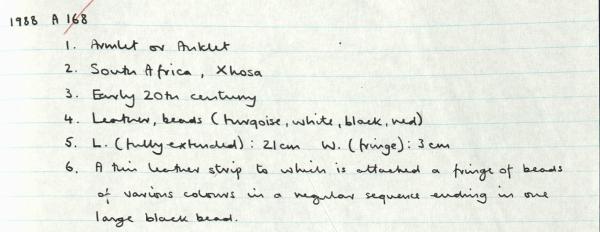 1988 A 168
1. Armlet or Anklet
2. South Africa, Xhosa
3. Early 20th century
4. Leather, beads (turqoise, white, black, red)
5. L. (fully extended): 21cm W. (fringe): 3cm
6. A thin leather strip to which is attached a fringe of beads
of various colours in a regular sequence ending in one
large black bead.